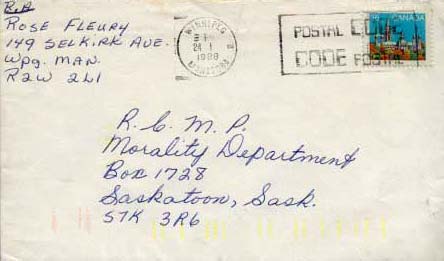 Rose Fleury
149 Selkirk Ave.
Wpg. Man.
R2W 2L1
WINNIPEG
24 I
1988
MANITOBA
POSTAL CODE
CODE POSTAL
CANADA
R. C. M. P.
Morality Department
Box 1728
Saskatoon, Sask.
S7K 3R6